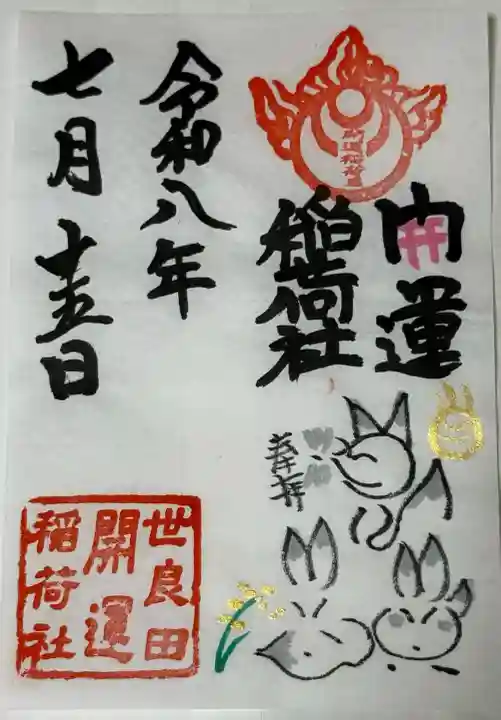 開運
稲荷社
奉拝
令和八年
七月十五日
世良田
開運
稲荷社